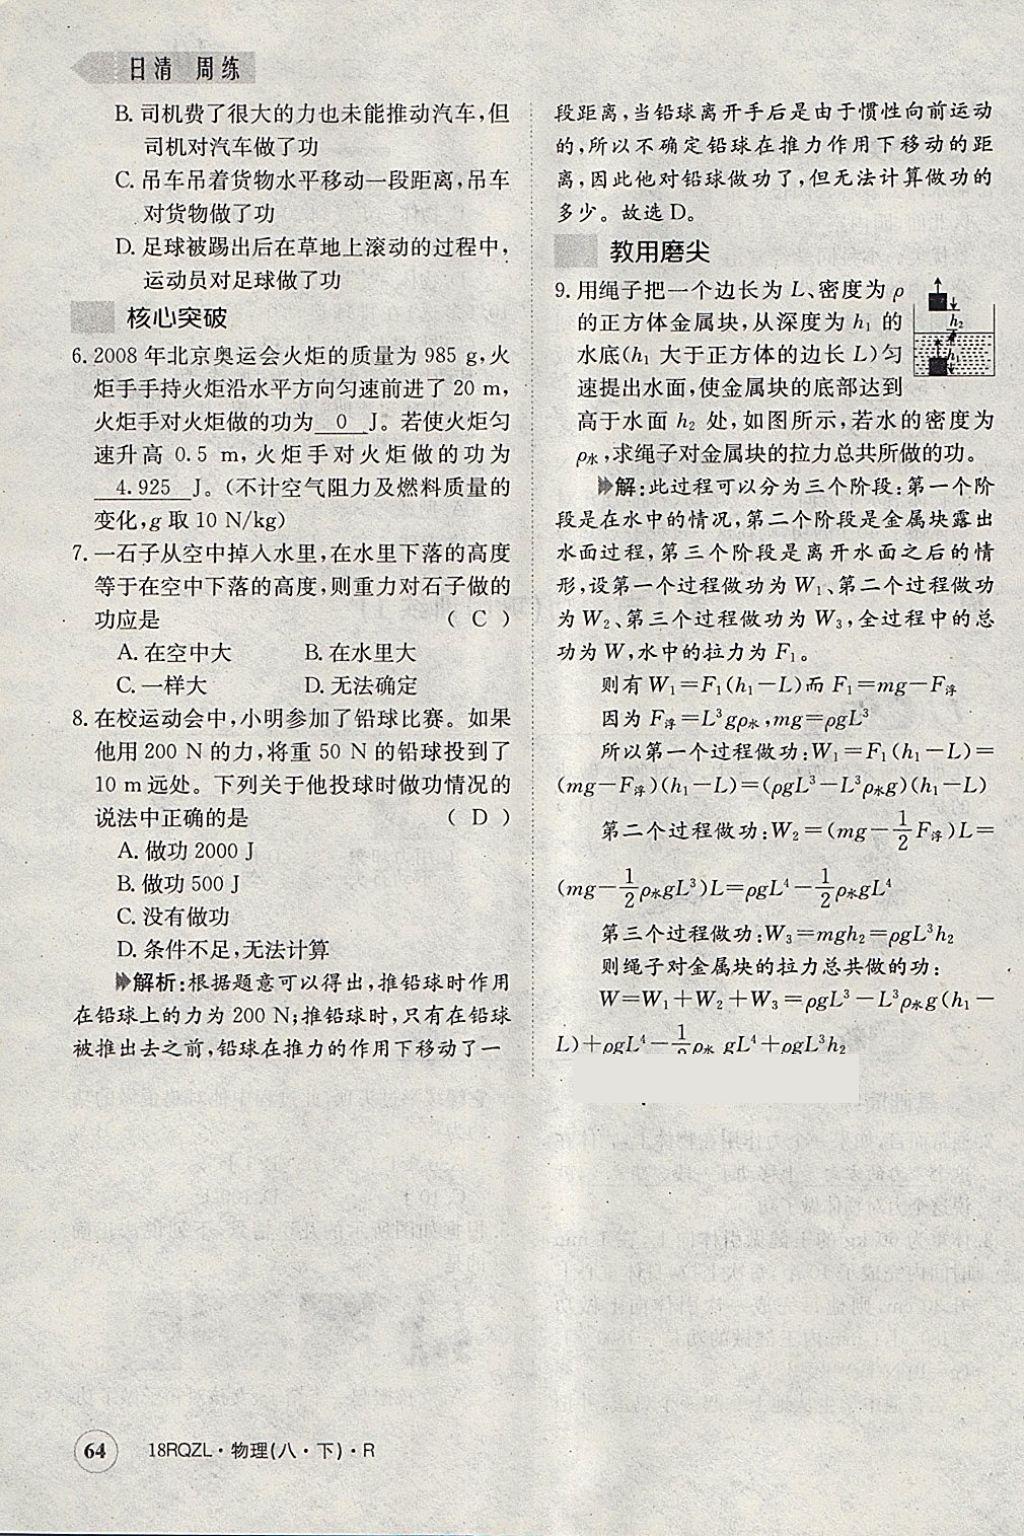 日清 周练
B. 司机费了很大的力也未能推动汽车,但
司机对汽车做了功
C. 吊车吊着货物水平移动一段距离,吊车
对货物做了功
D. 足球被踢出后在草地上滚动的过程中,
运动员对足球做了功
核心突破
6. 2008 年北京奥运会火炬的质量为 985 g,火
炬手手持火炬沿水平方向匀速前进了 20 m,
火炬手对火炬做的功为 0 J。若使火炬匀
速升高 0.5 m,火炬手对火炬做的功为
4.925 J。(不计空气阻力及燃料质量的
变化,g 取 10 N/kg)
7. 一石子从空中掉入水里,在水里下落的高度
等于在空中下落的高度,则重力对石子做的
功应是 ( C )
A. 在空中大 B. 在水里大
C. 一样大 D. 无法确定
8. 在校运动会中,小明参加了铅球比赛。如果
他用 200 N 的力,将重 50 N 的铅球投到了
10 m 远处。下列关于他投球时做功情况的
说法中正确的是 ( D )
A. 做功 2000 J
B. 做功 500 J
C. 没有做功
D. 条件不足,无法计算
解析:根据题意可以得出,推铅球时作用
在铅球上的力为 200 N;推铅球时,只有在铅球
被推出去之前,铅球在推力的作用下移动了一
段距离,当铅球离开手后是由于惯性向前运动
的,所以不确定铅球在推力作用下移动的距
离,因此他对铅球做功了,但无法计算做功的
多少。故选 D。
教用磨尖
9. 用绳子把一个边长为 L、密度为 ρ
的正方体金属块,从深度为 h₁ 的
水底(h₁ 大于正方体的边长 L)匀
速提出水面,使金属块的底部达到
高于水面 h₂ 处,如图所示,若水的密度为
ρ水,求绳子对金属块的拉力总共所做的功。
h₂
h₁
解:此过程可以分为三个阶段:第一个阶
段是在水中的情况,第二个阶段是金属块露出
水面过程,第三个阶段是离开水面之后的情
形,设第一个过程做功为 W₁、第二个过程做功
为 W₂、第三个过程做功为 W₃,全过程中的总
功为 W,水中的拉力为 F₁。
则有 W₁=F₁(h₁-L)而 F₁=mg-F浮
因为 F浮=L³gρ水,mg=ρgL³
所以第一个过程做功:W₁=F₁(h₁-L)=
(mg-F浮)(h₁-L)=(ρgL³-L³ρ水g)(h₁-L)
第二个过程做功:W₂=(mg-1/2F浮)L=
(mg-1/2ρ水gL³)L=ρgL⁴-1/2ρ水gL⁴
第三个过程做功:W₃=mgh₂=ρgL³h₂
则绳子对金属块的拉力总共做的功:
W=W₁+W₂+W₃=ρgL³-L³ρ水g(h₁-
L)+ρgL⁴-1/2ρ水gL⁴+ρgL³h₂
64 18RQZL·物理(八·下)·R